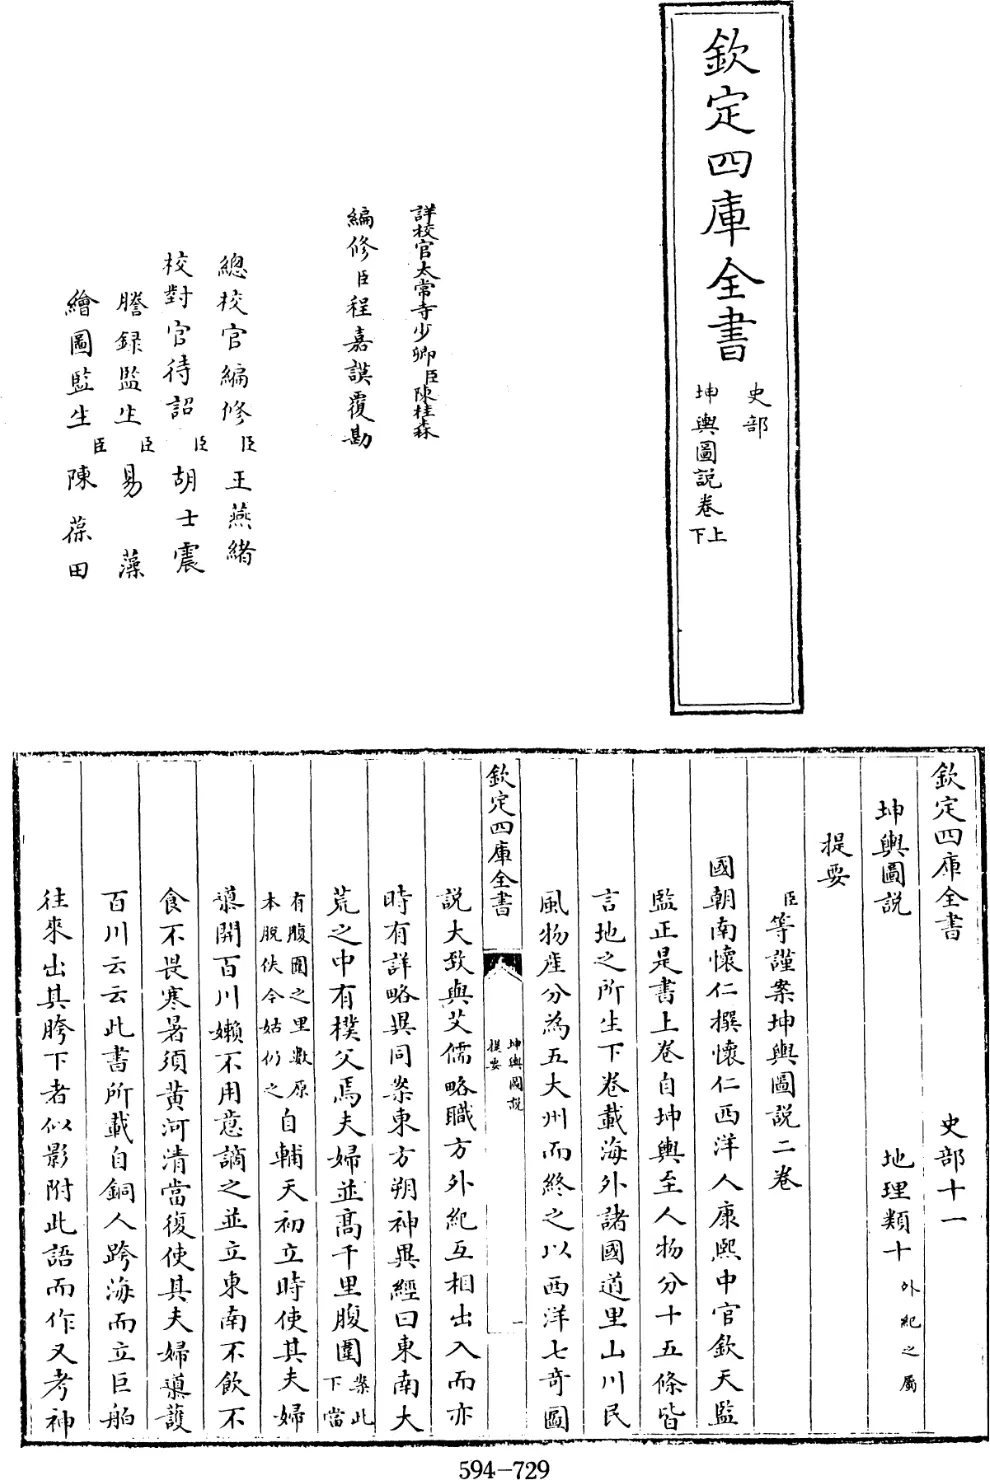 欽定四庫全書
史部
坤輿圖說卷上下
詳校官太常寺少卿臣陳桂森
編修臣程嘉謨覆勘
總校官編修臣王燕緒
校對官待詔臣胡士震
謄録監生臣易藻
繪圖監生臣陳葆田
欽定四庫全書 史部十一
坤輿圖說 地理類十外紀之屬
提要
臣等謹案坤輿圖說二卷
國朝南懷仁撰懷仁西洋人康熙中官欽天監
監正是書上卷自坤輿至人物分十五條皆
言地之所生下卷載海外諸國道里山川民
風物產分為五大州而終之以西洋七奇圖
欽定四庫全書
坤輿圖說
提要
一
說大致與艾儒略職方外紀互相出入而亦
時有詳略異同案東方朔神異經曰東南大
荒之中有樸父焉夫婦並高千里腹圍案此下當
有腹圍之里數原本脫佚今姑仍之自輔天初立時使其夫婦
導開百川嬾不用意謫之並立東南不飲不
食不畏寒暑須黃河清當復使其夫婦導護
百川云云此書所載自銅人跨海而立巨舶
往來出其胯下者似影附此語而作又考神
594-729